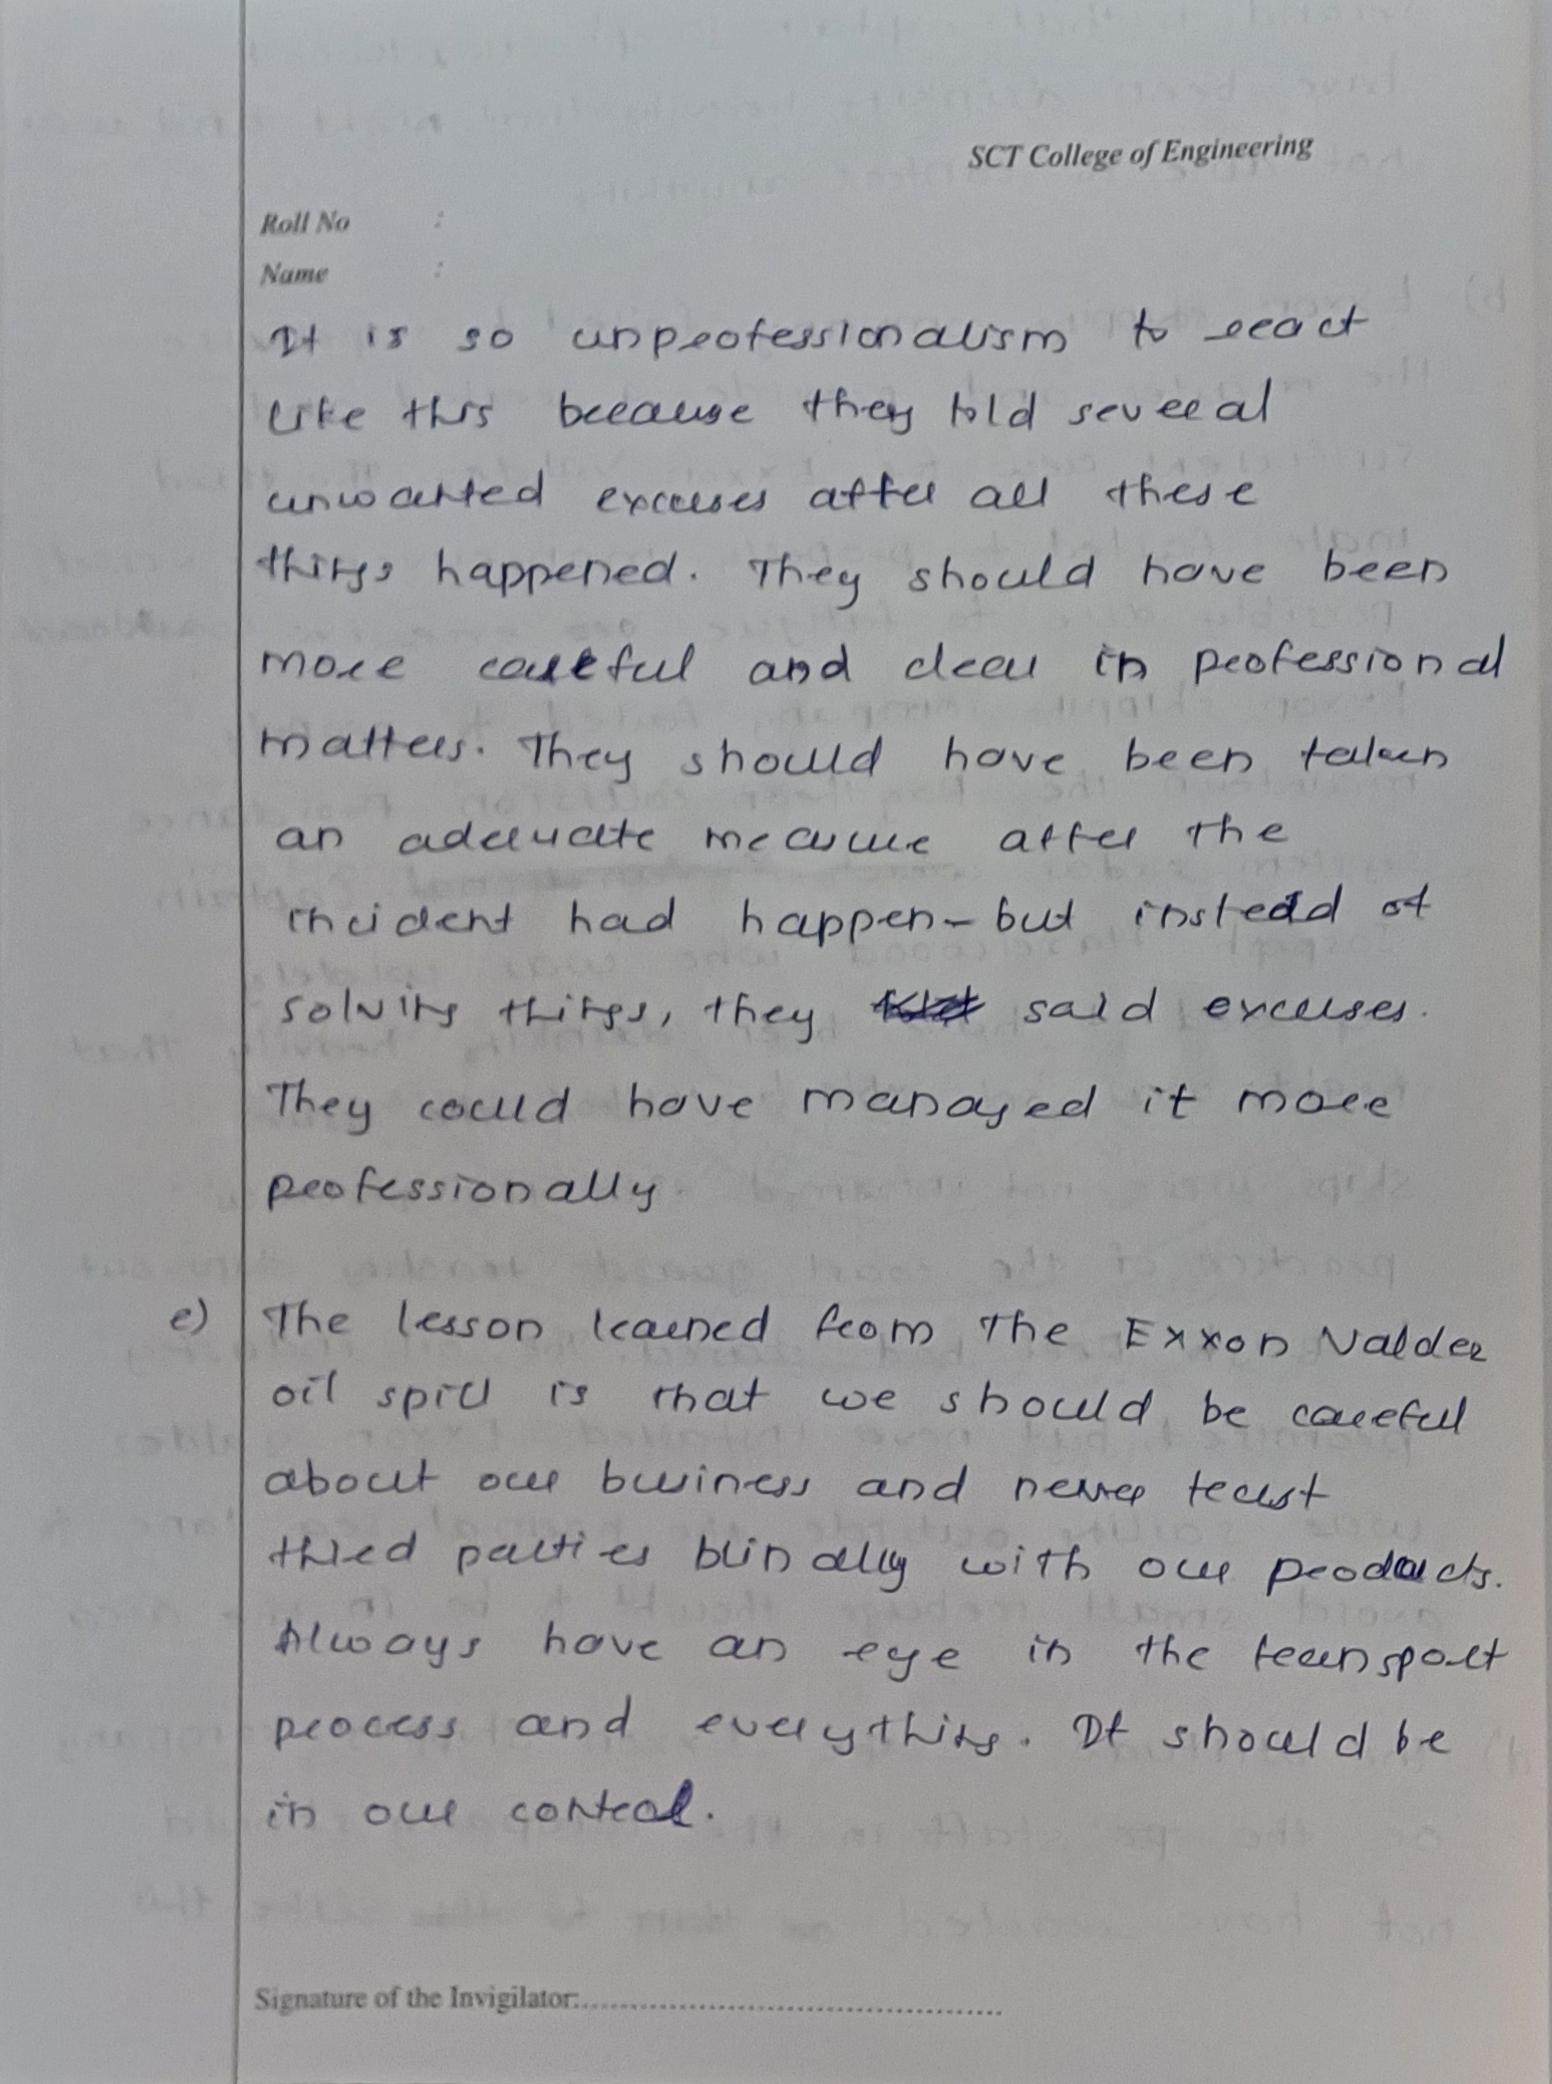 SCT College of Engineering
Roll No :
Name :
It is so unprofessionalism to react
like this because they told several
unwanted excuses after all these
things happened. They should have been
more careful and clear in professional
matters. They should have been taken
an adequate measure after the
incident had happen - but instead of
solving things, they said excuses.
They could have managed it more
professionally
e) The lesson learned from the Exxon Valdez
oil spill is that we should be careful
about our business and never trust
third parties blindly with our products.
Always have an eye in the transport
process and everything. It should be
in our control.
Signature of the Invigilator:....................................................